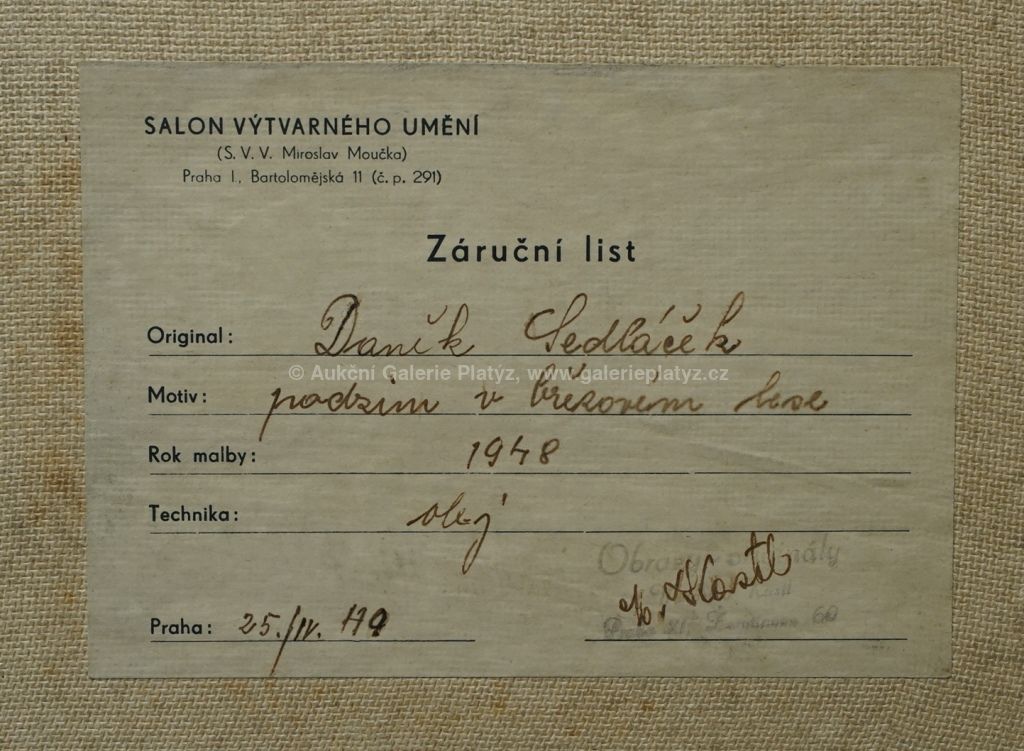 SALON VÝTVARNÉHO UMĚNÍ
(S. V. V. Miroslav Moučka)
Praha I., Bartolomějská 11 (č. p. 291)
Záruční list
Original: Daněk Sedláček
© Aukční Galerie Platýz, www.galerieplatyz.cz
Motiv: podzim v březovém lese
Rok malby: 1948
Technika: olej
Obrazy
Praha: 25./IV. 49